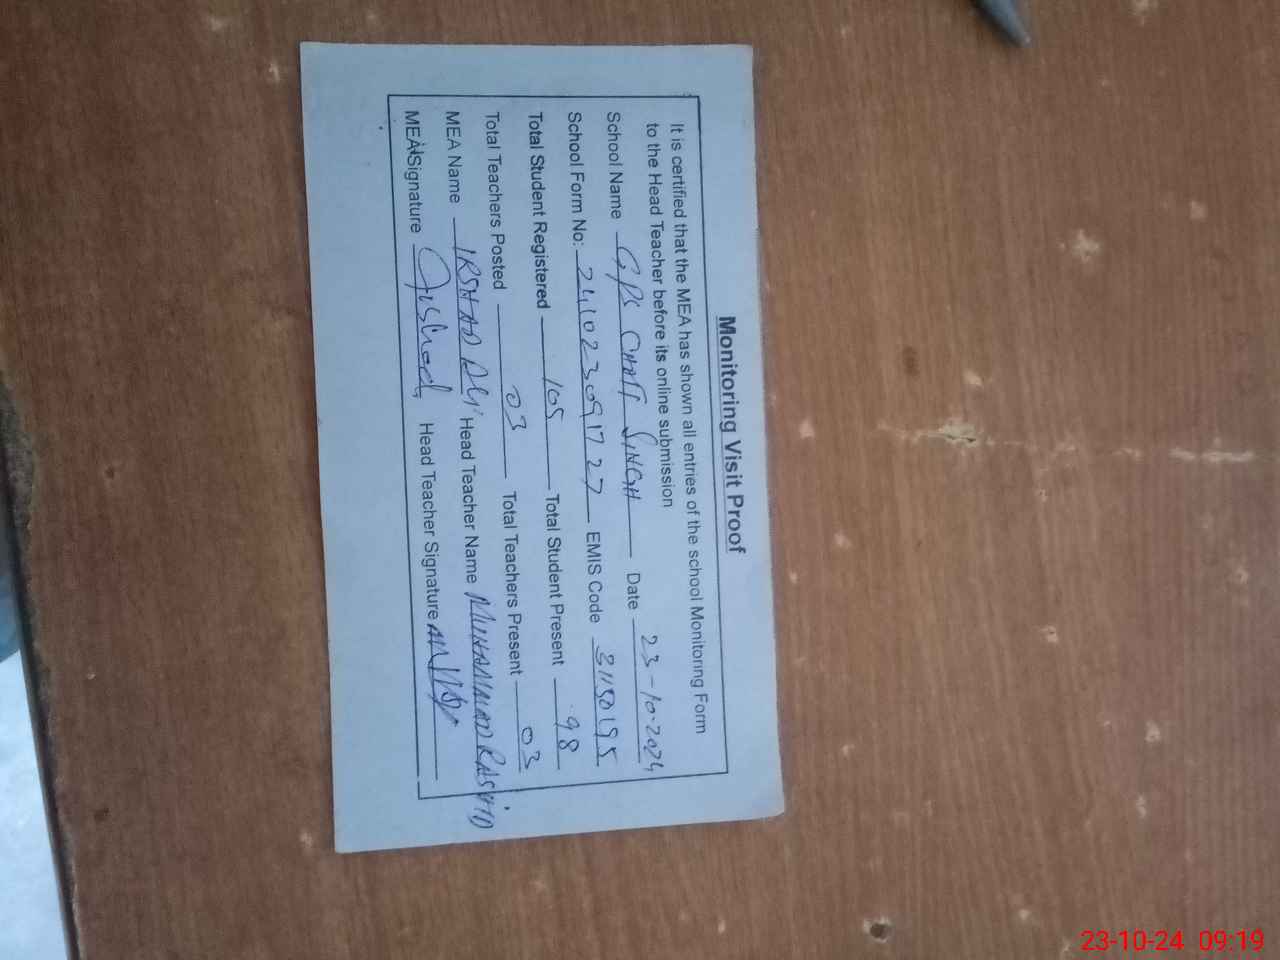 Monitoring Visit Proof
It is certified that the MEA has shown all entries of the school Monitoring Form
to the Head Teacher before its online submission
School Name GPS CHATT SINGH Date 23-10-2024
School Form No: 241023091727 EMIS Code 31150195
Total Student Registered 105 Total Student Present 98
Total Teachers Posted 03 Total Teachers Present 03
MEA Name IRSHAD ALI Head Teacher Name MUHAMMAD RASHID
MEA Signature Irshad Head Teacher Signature
23-10-24 09:19